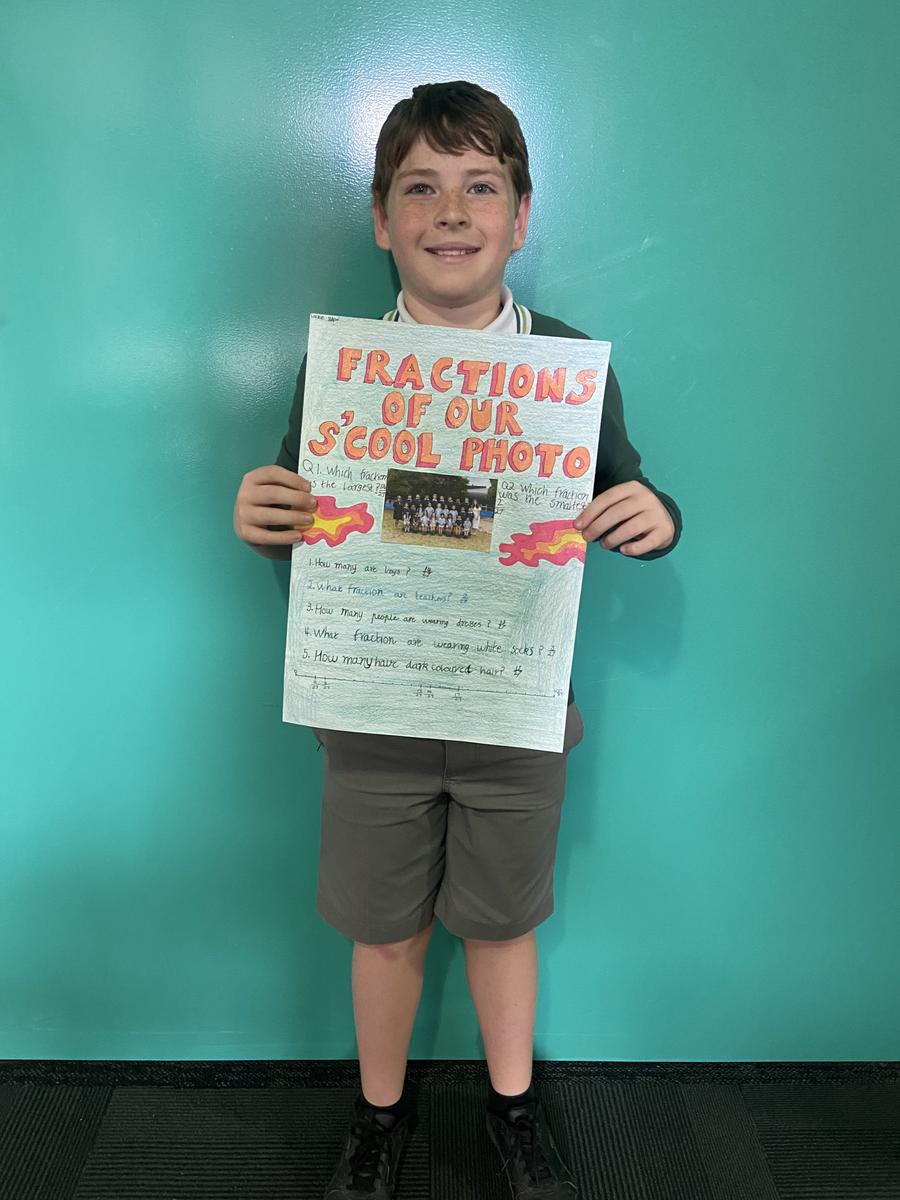 FRACTIONS
OF OUR
S'COOL PHOTO
Q1. Which fraction
is the largest?
Q2 Which fraction
was the smallest
1. How many are boys?
2. What fraction are teachers?
3. How many people are wearing dresses?
4. What fraction are wearing white socks?
5. How many have dark coloured hair?